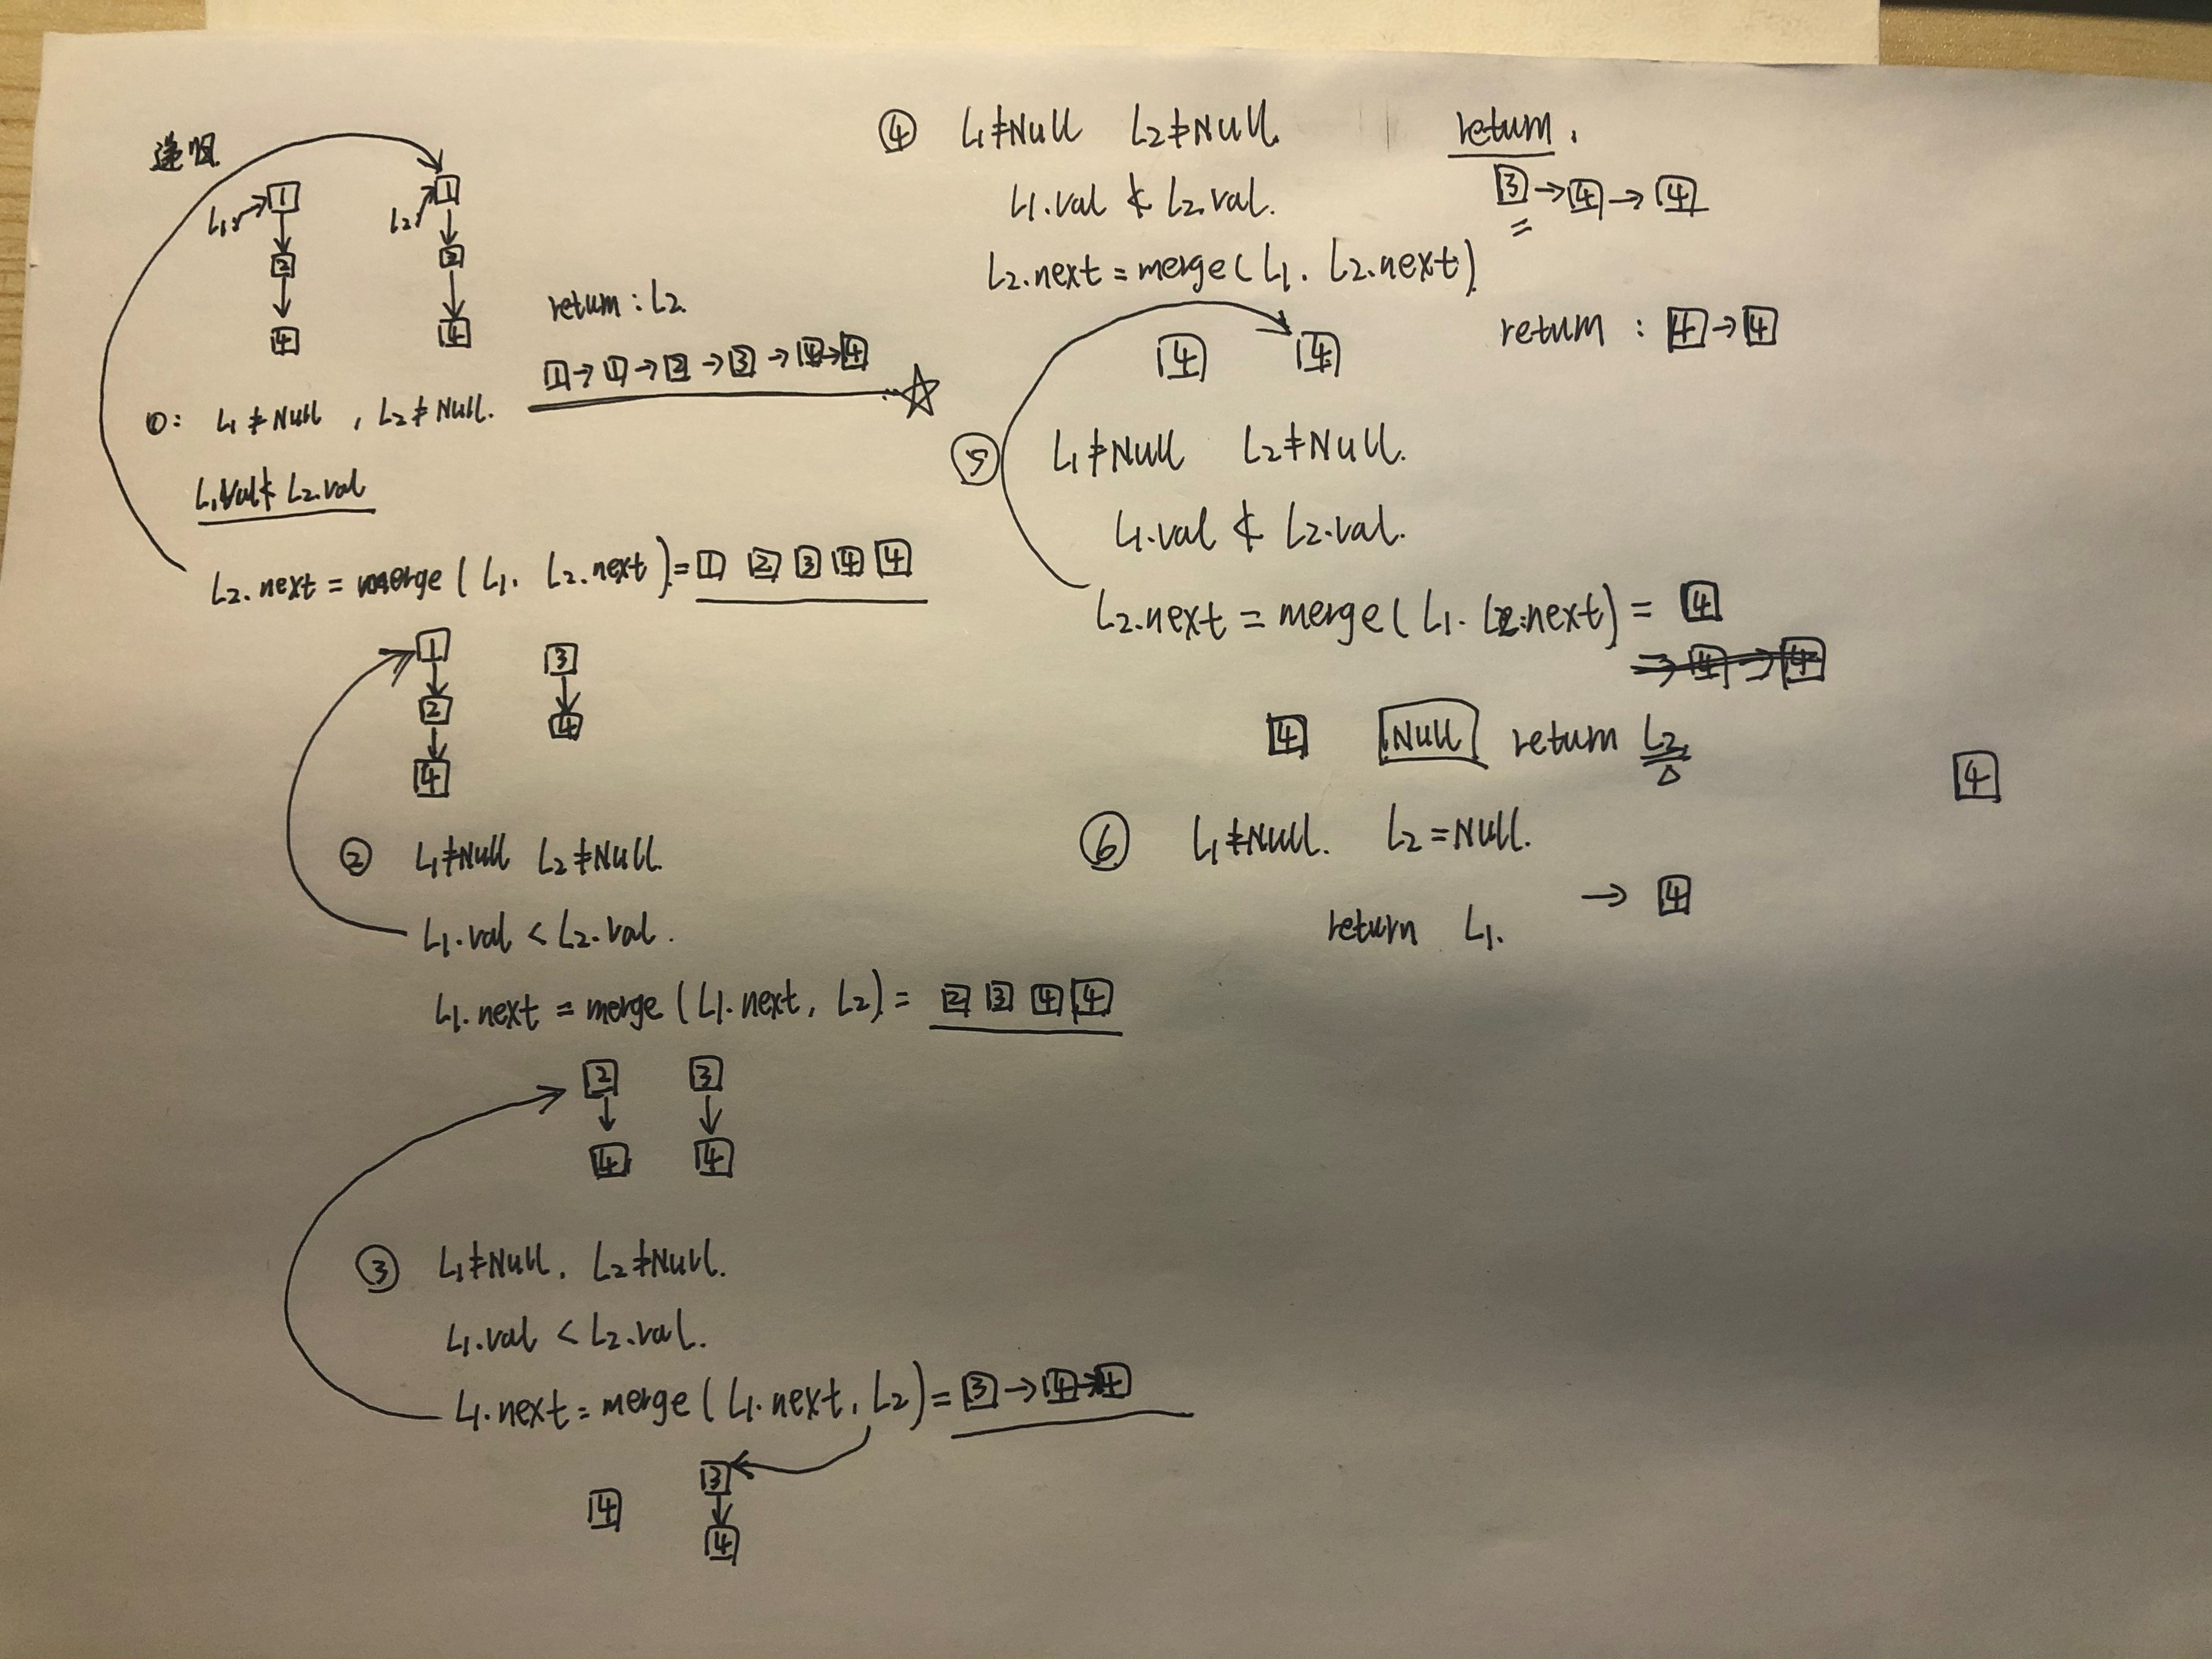 递归
L1 → 1 L2 → 1
2 3
4 4
return : L2.
1 → 1 → 2 → 3 → 4 → 4
①: L1 ≠ Null , L2 ≠ Null.
L1.val ≮ L2.val
L2.next = merge ( L1. L2.next ) = 1 2 3 4 4
1 3
2 4
4
② L1 ≠ Null L2 ≠ Null.
L1.val < L2.val.
L1.next = merge ( L1.next, L2 ) = 2 3 4 4
2 3
4 4
③ L1 ≠ Null. L2 ≠ Null.
L1.val < L2.val.
L1.next = merge ( L1.next, L2 ) = 3 → 4 → 4
4 3
4
④ L1 ≠ Null L2 ≠ Null. return.
L1.val ≮ L2.val. 3 → 4 → 4
L2.next = merge ( L1. L2.next )
4 4 return : 4 → 4
⑤ L1 ≠ Null L2 ≠ Null.
L1.val ≮ L2.val.
L2.next = merge ( L1. L2.next ) = 4
⇒ 4 → 4
4 Null return L2.
4
⑥ L1 ≠ Null. L2 = Null.
return L1. → 4